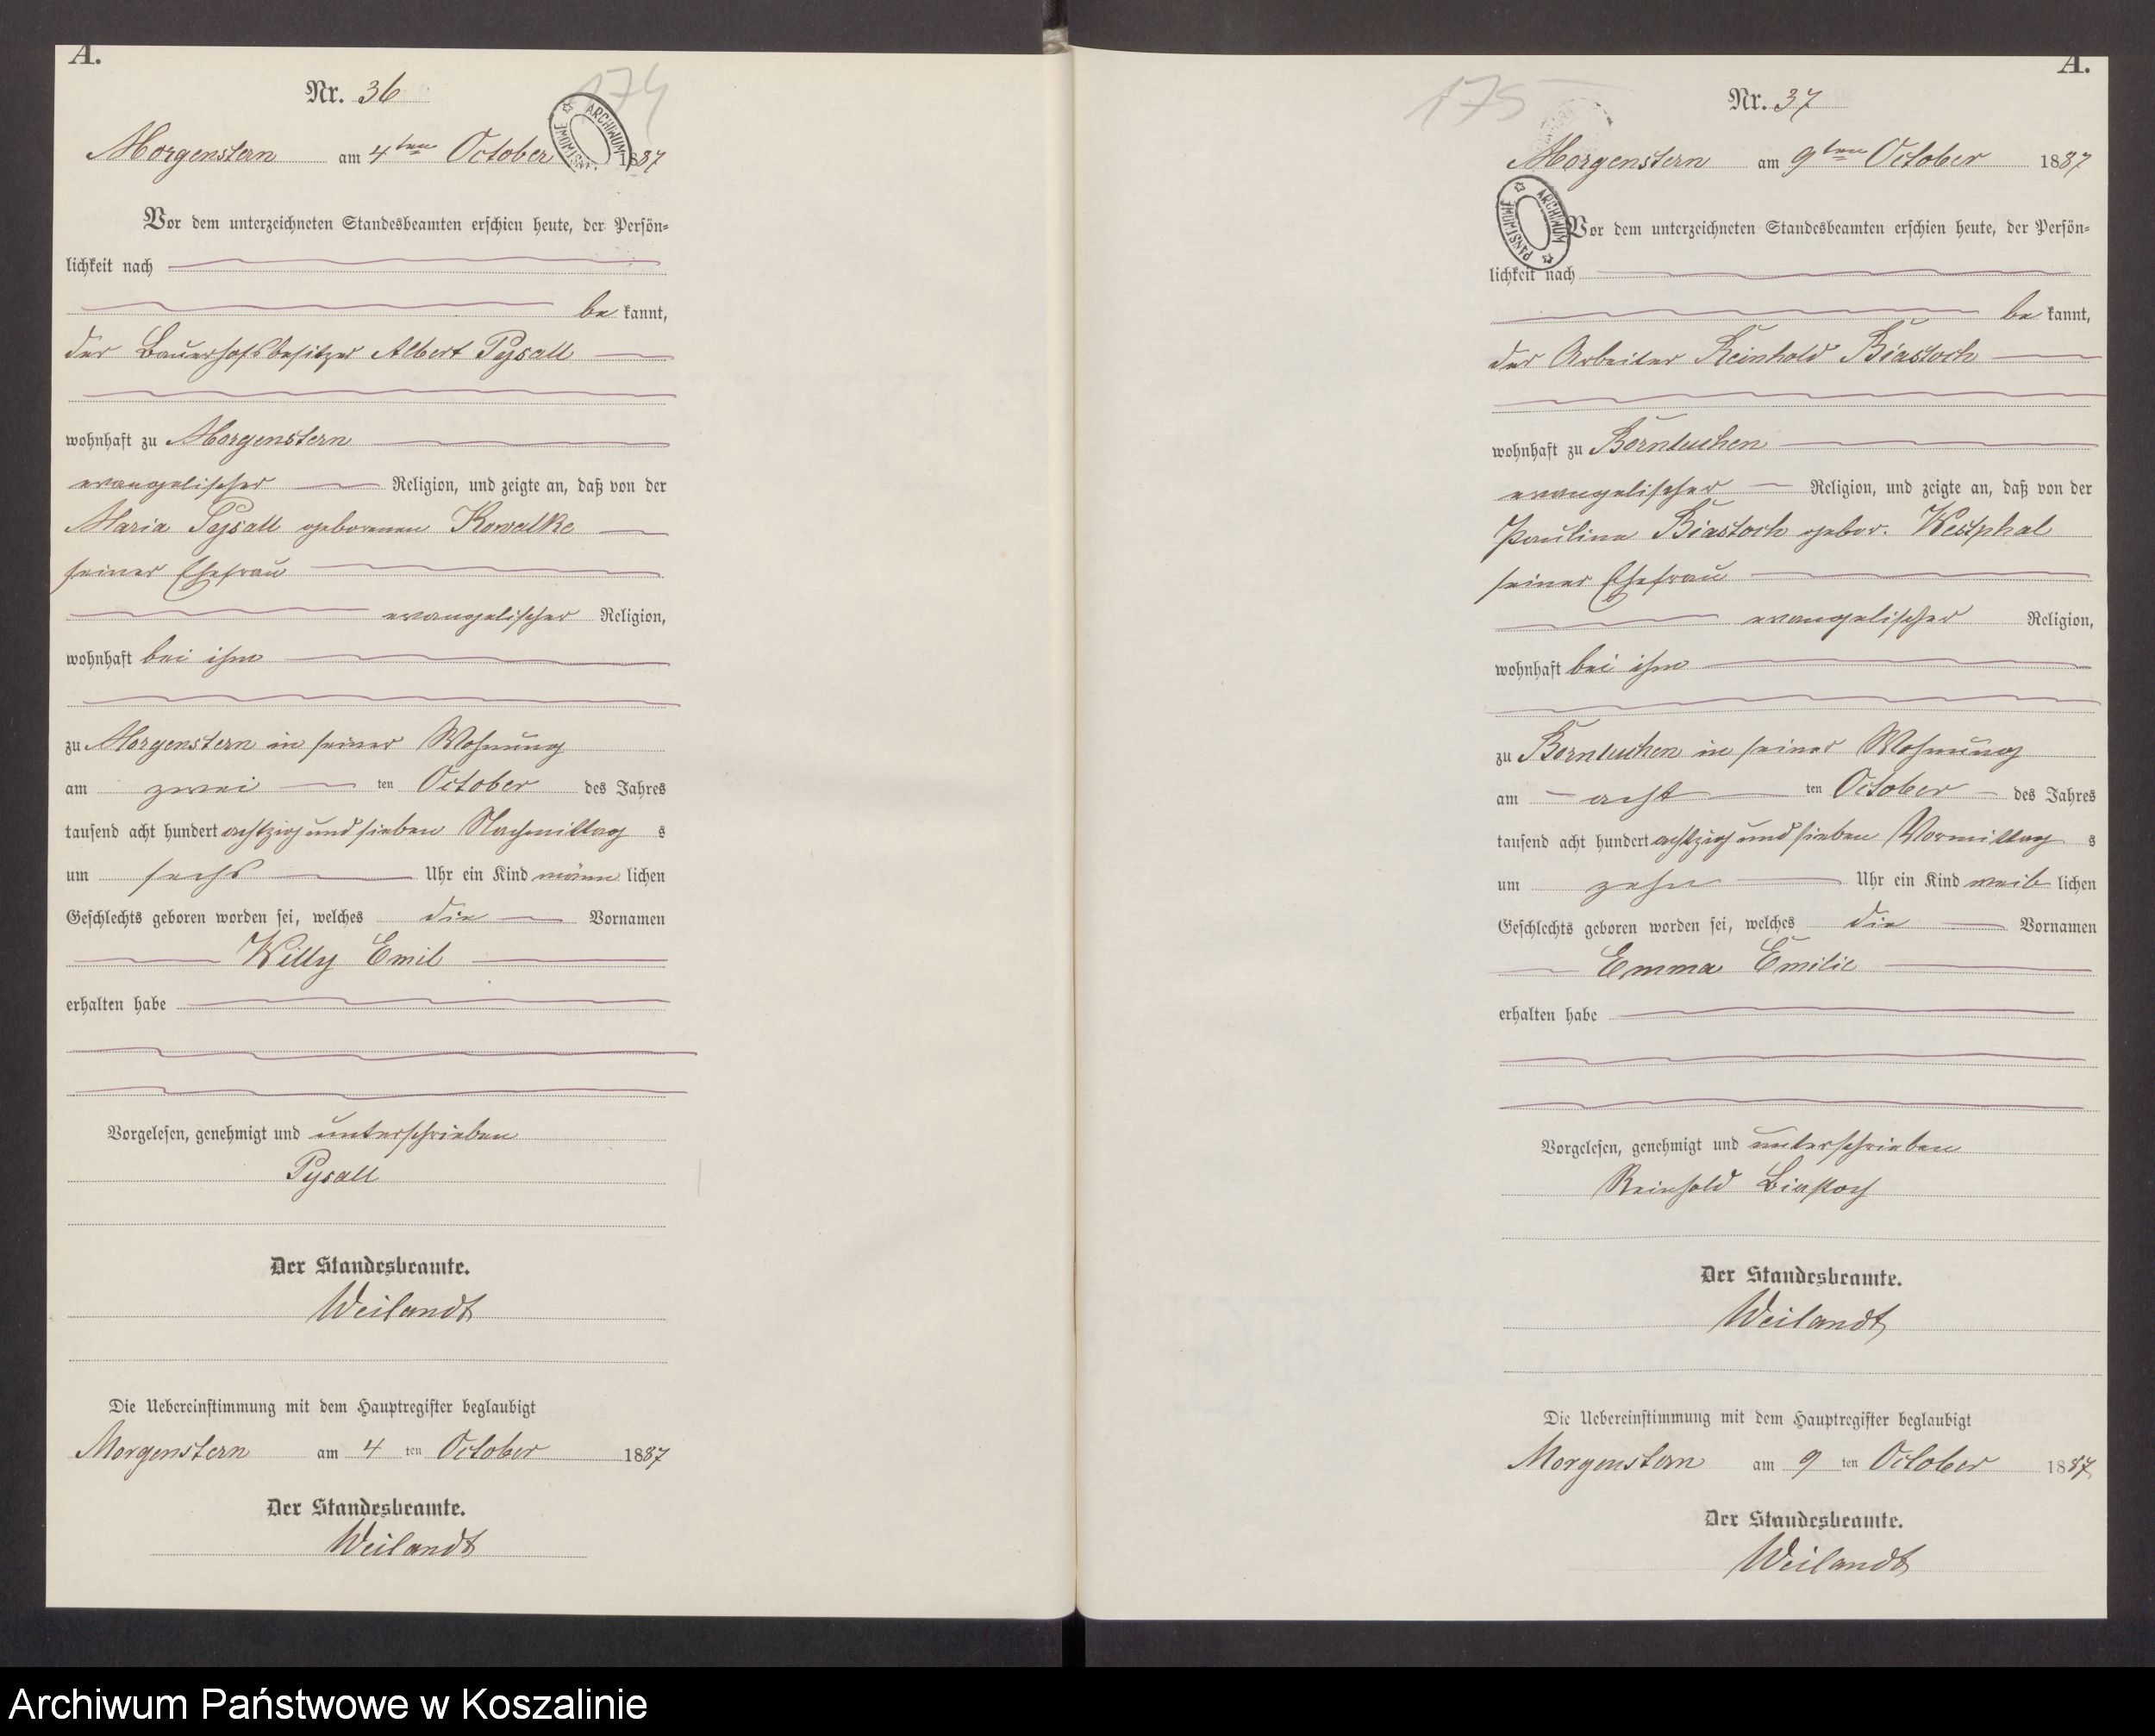 A.
Nr. 36
174
ARCHIWUM PAŃSTWOWE
Morgenstern am 4ten October 1887
Vor dem unterzeichneten Standesbeamten erschien heute, der Persön-
lichkeit nach
be kannt,
der Bauerhofsbesitzer Albert Pysall
wohnhaft zu Morgenstern
evangelischer Religion, und zeigte an, daß von der
Maria Pysall geborenen Kowalke
seiner Ehefrau
evangelischer Religion,
wohnhaft bei ihm
zu Morgenstern in seiner Wohnung
am zwei ten October des Jahres
tausend acht hundert achtzig und sieben Nachmittag s
um sechs Uhr ein Kind männ lichen
Geschlechts geboren worden sei, welches die Vornamen
Willy Emil
erhalten habe
Vorgelesen, genehmigt und unterschrieben
Pysall
Der Standesbeamte.
Weilandt
Die Uebereinstimmung mit dem Hauptregister beglaubigt
Morgenstern am 4 ten October 1887
Der Standesbeamte.
Weilandt
A.
175
Nr. 37
Morgenstern am 9ten October 1887
ARCHIWUM PAŃSTWOWE
Vor dem unterzeichneten Standesbeamten erschien heute, der Persön-
lichkeit nach
be kannt,
der Arbeiter Reinhold Biastoch
wohnhaft zu Borntuchen
evangelischer Religion, und zeigte an, daß von der
Pauline Biastoch gebor. Westphal
seiner Ehefrau
evangelischer Religion,
wohnhaft bei ihm
zu Borntuchen in seiner Wohnung
am acht ten October des Jahres
tausend acht hundert achtzig und sieben Vormittag s
um zehn Uhr ein Kind weib lichen
Geschlechts geboren worden sei, welches die Vornamen
Emma Emilie
erhalten habe
Vorgelesen, genehmigt und unterschrieben
Reinhold Biastoch
Der Standesbeamte.
Weilandt
Die Uebereinstimmung mit dem Hauptregister beglaubigt
Morgenstern am 9 ten October 1887
Der Standesbeamte.
Weilandt
Archiwum Państwowe w Koszalinie